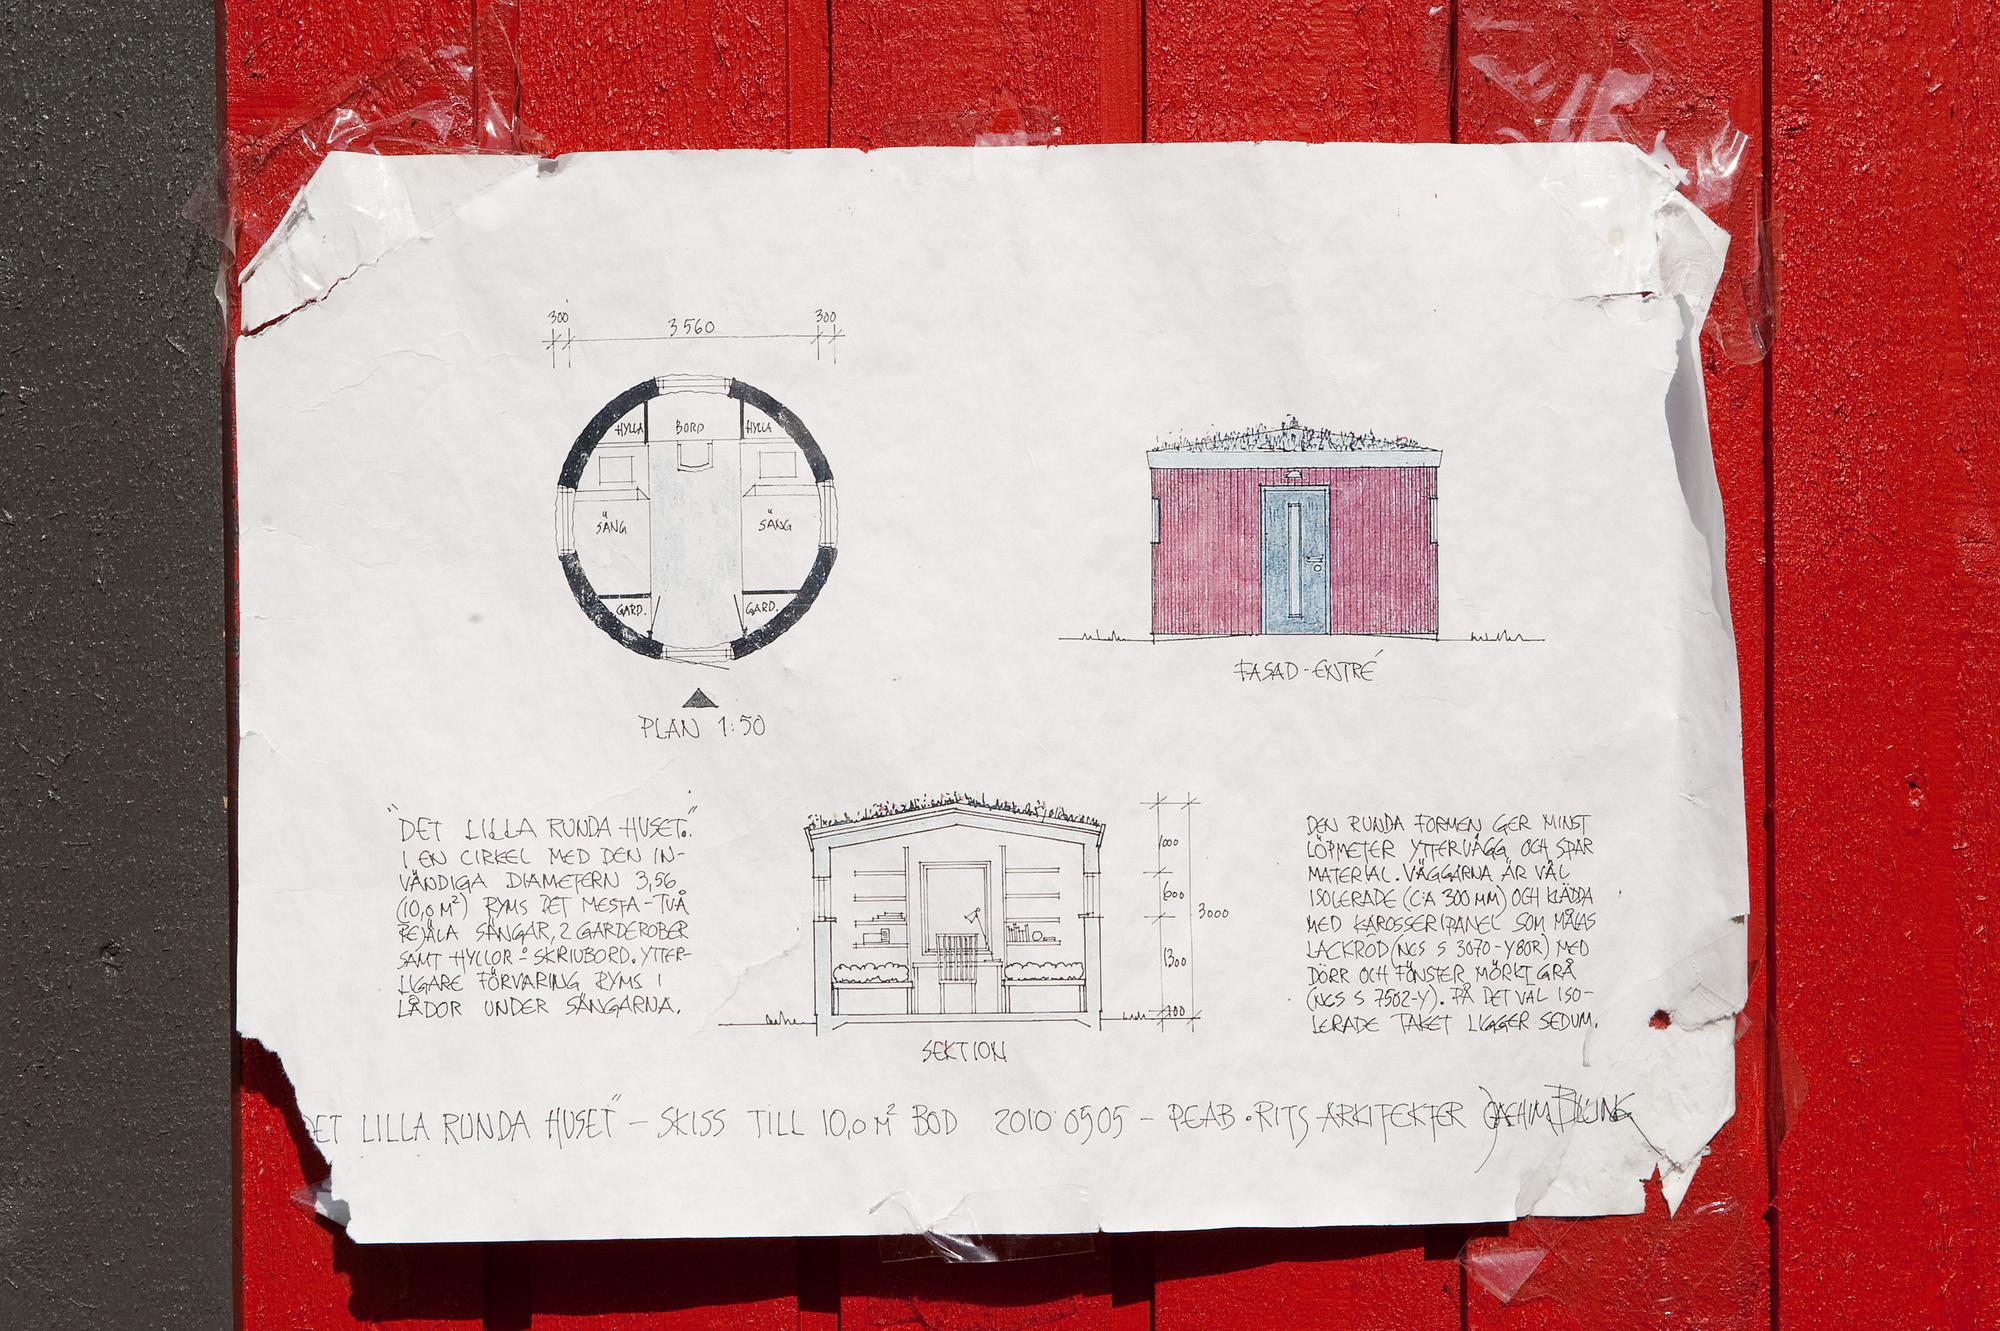 300 3560 300
HYLLA BORD HYLLA
SÄNG SÄNG
GARD. GARD.
PLAN 1:50
FASAD-ENTRÉ
"DET LILLA RUNDA HUSET."
I EN CIRKEL MED DEN IN-
VÄNDIGA DIAMETERN 3,56
(10,0 M²) RYMS DET MESTA-TVÅ
REJÄLA SÄNGAR, 2 GARDEROBER
SAMT HYLLOR o SKRIVBORD. YTTER-
LIGARE FÖRVARING RYMS I
LÅDOR UNDER SÄNGARNA.
1000
600
3000
1300
100
SEKTION
DEN RUNDA FORMEN GER MINST
LÖPMETER YTTERVÄGG OCH SPAR
MATERIAL. VÄGGARNA ÄR VÄL
ISOLERADE (CA 300 MM) OCH KLÄDDA
MED KAROSSERIPANEL SOM MÅLAS
LACKRÖD (NCS S 3070-Y80R) MED
DÖRR OCH FÖNSTER MÖRKT GRÅ
(NCS S 7502-Y). PÅ DET VÄL ISO-
LERADE TAKET LIGGER SEDUM.
DET LILLA RUNDA HUSET" - SKISS TILL 10,0 M² BOD 2010 0505 - PEAB • RITS ARKITEKTER JOACHIM